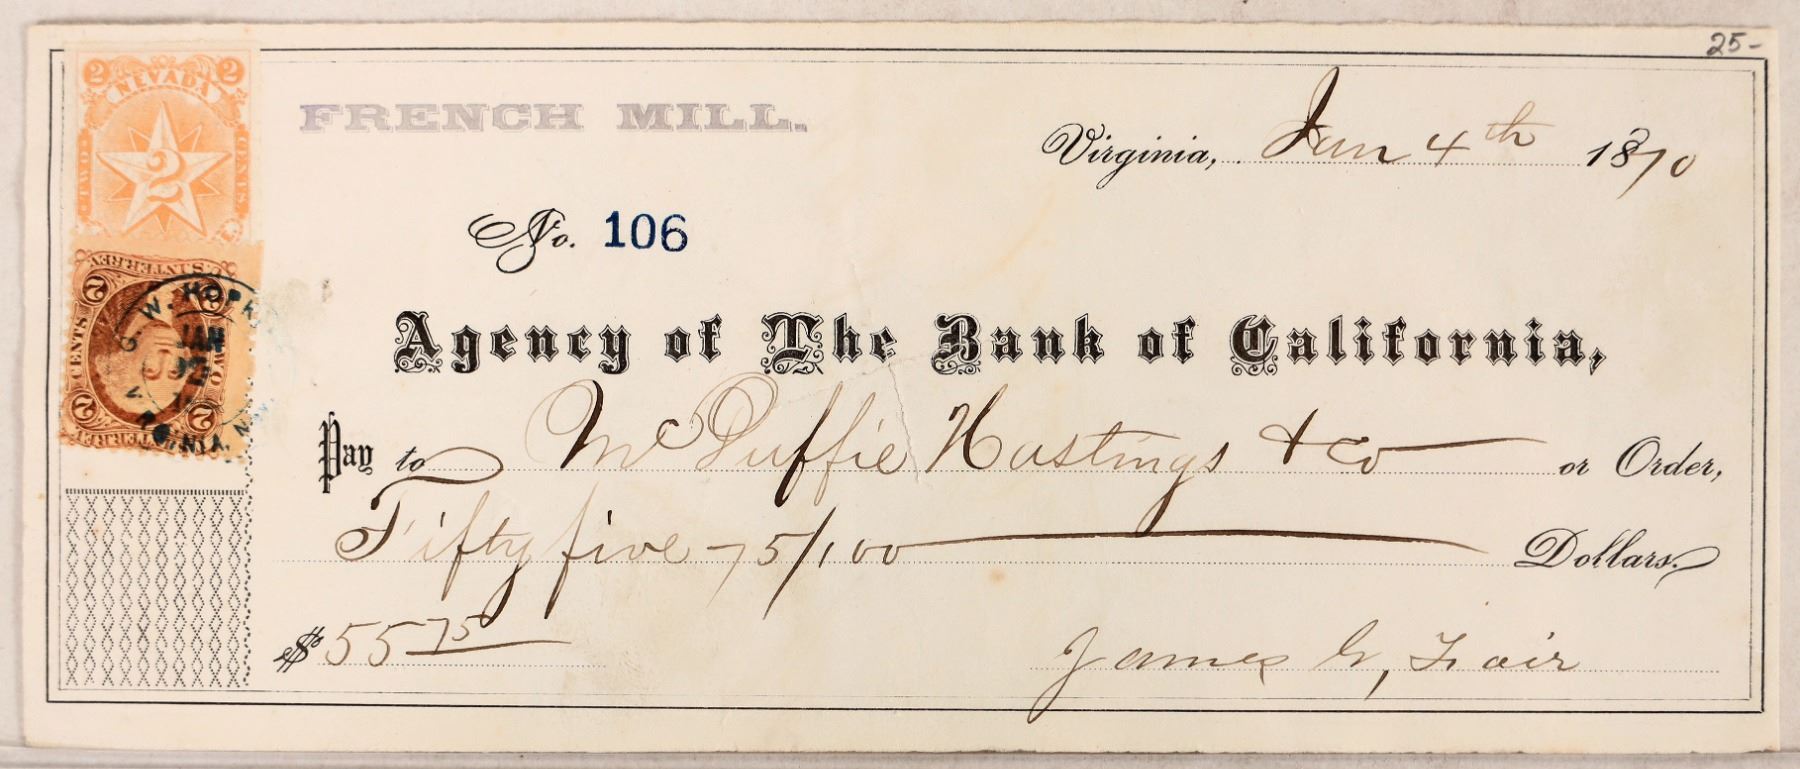 25-
2 NEVADA 2
TWO 2 CENTS
FRENCH MILL.
Virginia, Jan 4th 1870
No. 106
U.S. INTER. REV.
2 2
CENTS TWO
2 2
INTER. REV.
W. HOPK
JAN
GINIA, N
Agency of The Bank of California,
Pay to McDuffie Hastings & Co or Order,
Fifty five 75/100 Dollars.
$55 75
James G, Fair